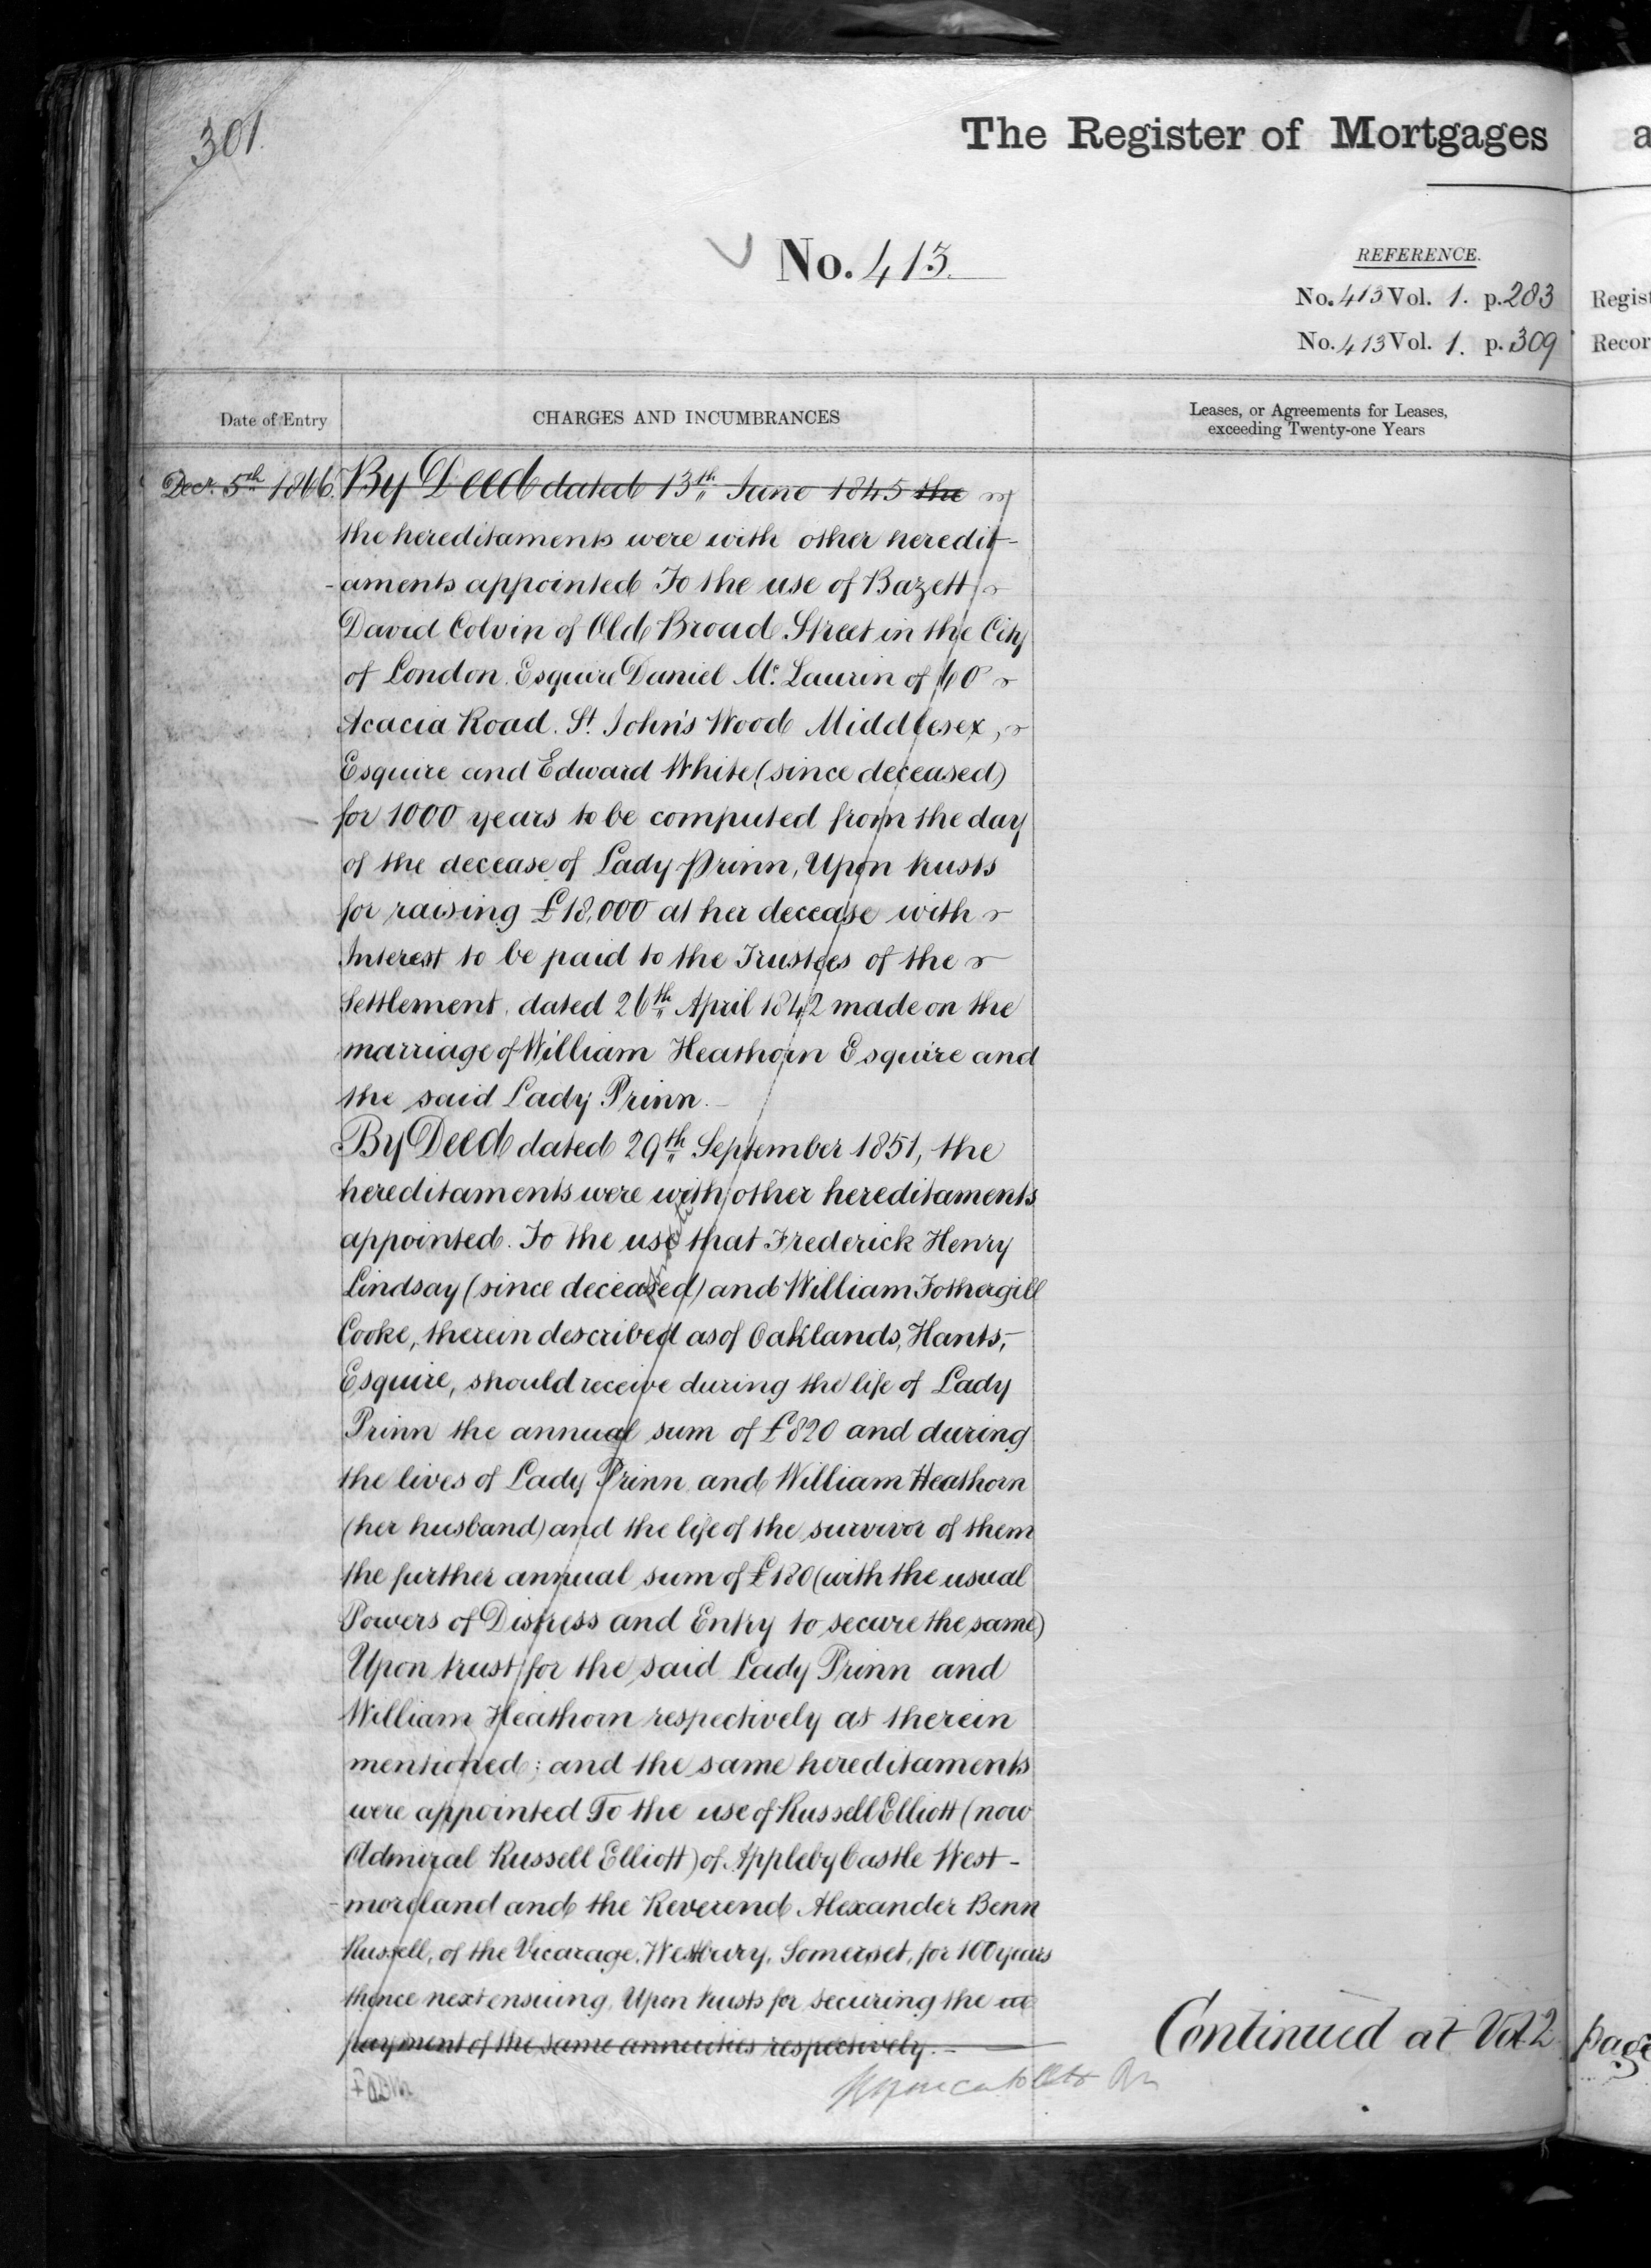 301.
The Register of Mortgages
a
No. 413.
REFERENCE.
No. 413 Vol. 1. p. 283
Regist
No. 413 Vol. 1. p. 309
Recor
Date of Entry
CHARGES AND INCUMBRANCES
Leases, or Agreements for Leases,
exceeding Twenty-one Years
Decr. 5th 1866. By Deed dated 13th June 1845 the
the hereditaments were with other heredit-
-aments appointed To the use of Bazett
David Colvin of Old Broad Street in the City
of London Esquire Daniel Mc. Laurin of 60
Acacia Road. St. John's Wood Middlesex,
Esquire and Edward White (since deceased)
for 1000 years to be computed from the day
of the decease of Lady Prinn, Upon trusts
for raising £18,000 at her decease with
Interest to be paid to the Trustees of the
Settlement, dated 26th April 1842 made on the
marriage of William Heathorn Esquire and
the said Lady Prinn.
By Deed dated 29th September 1851, the
hereditaments were with other hereditaments
appointed. To the use that Frederick Henry
Lindsay (since deceased) and William Fothergill
Cooke, therein described as of Oaklands, Hants,
Esquire, should receive during the life of Lady
Prinn the annual sum of £820 and during
the lives of Lady Prinn and William Heathorn
(her husband) and the life of the survivor of them
the further annual sum of £180 (with the usual
Powers of Distress and Entry to secure the same)
Upon trust for the said Lady Prinn and
William Heathorn respectively as therein
mentioned; and the same hereditaments
were appointed To the use of Russell Elliott (now
Admiral Russell Elliott) of Appleby Castle West-
-moreland and the Reverend Alexander Benn
Russell, of the Vicarage, Westbury, Somerset, for 100 years
thence next ensuing, Upon trusts for securing the
payment of the same annuities respectively.
Continued at Vol 2 page